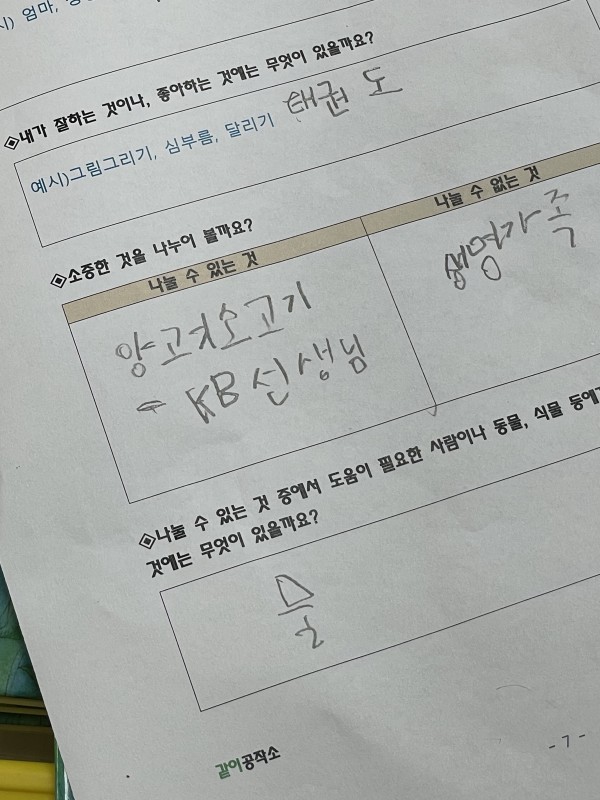 시) 엄마,
◈내가 잘하는 것이나, 좋아하는 것에는 무엇이 있을까요?
예시)그림그리기, 심부름, 달리기 태권도
◈소중한 것을 나누어 볼까요?
나눌 수 있는 것 나눌 수 없는 것
양고기소고기 생명가족
→ KB선생님
◈나눌 수 있는 것 중에서 도움이 필요한 사람이나 동물, 식물 등에게
것에는 무엇이 있을까요?
물
같이공작소
- 7 -